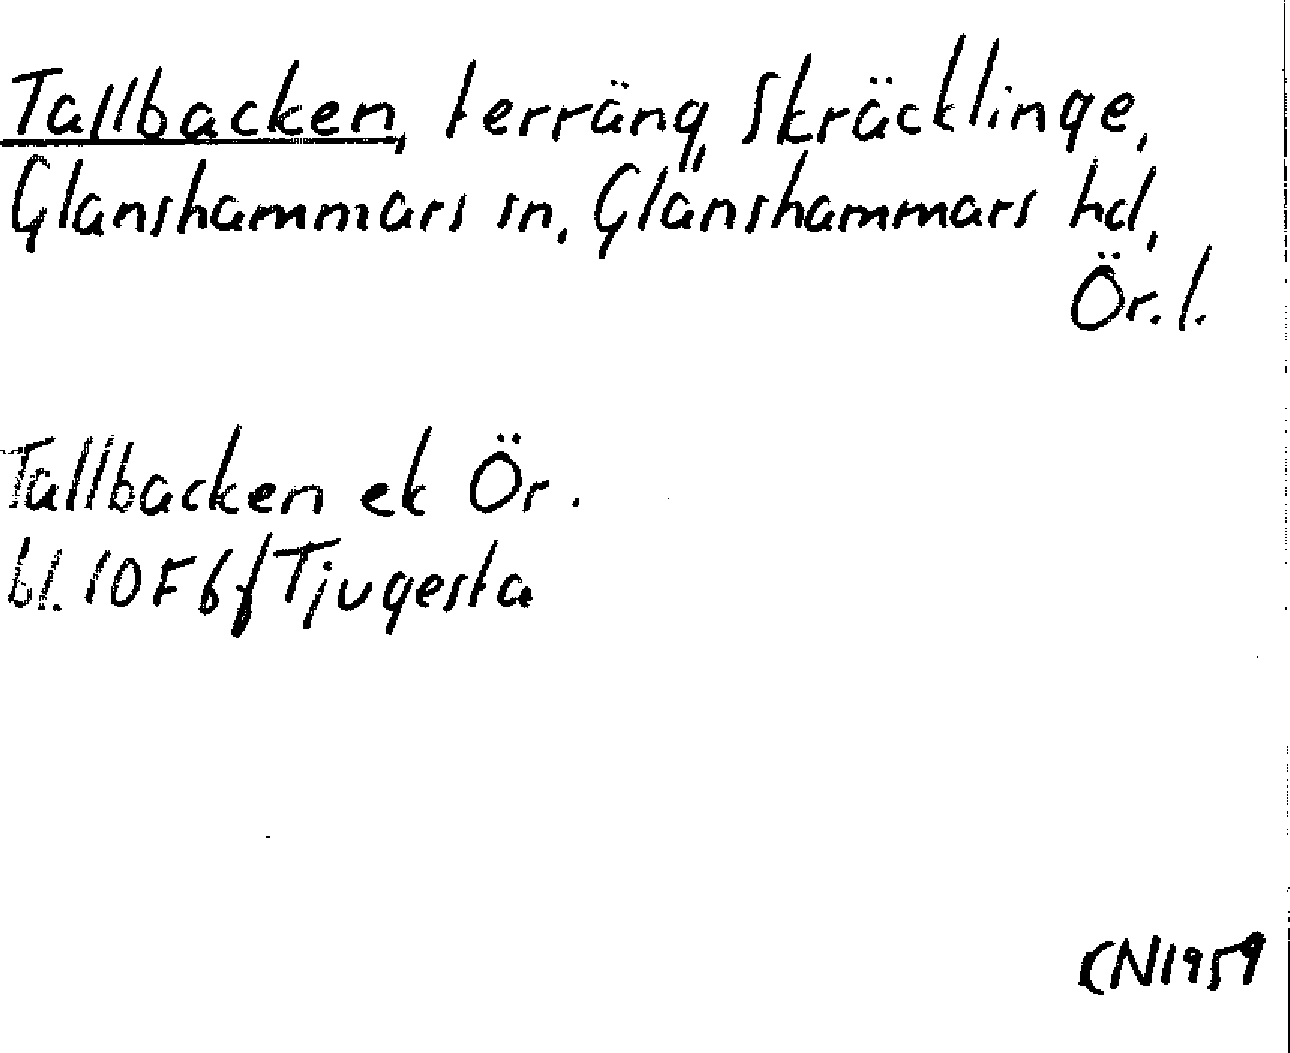 Tallbacken, terräng, Skräcklinge,
Glanshammars sn, Glanshammars hd,
Ör. l.
Tallbacken ek Ör.
bl. 10F6f Tjugesta
CN1959